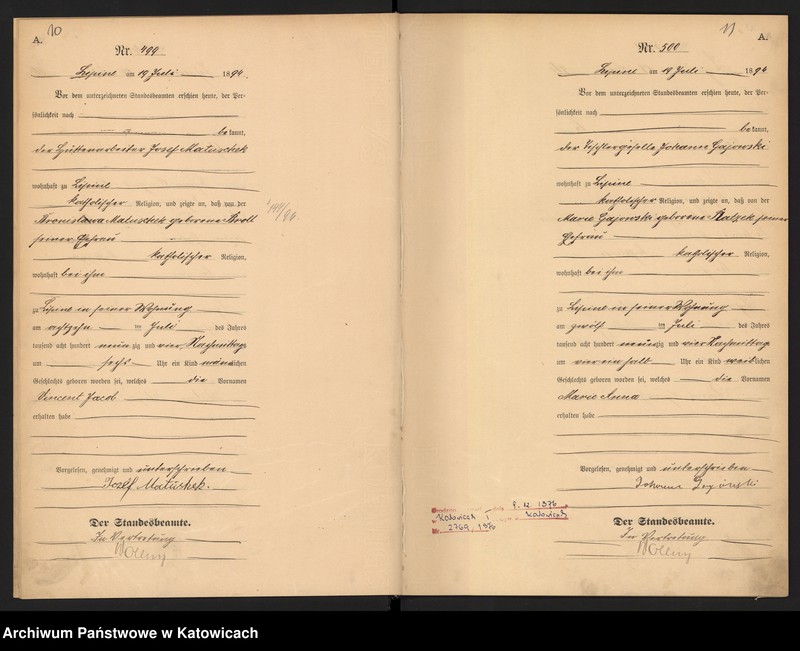 10
A.
Nr. 499
Lipine am 19 Juli 1894.
Vor dem unterzeichneten Standesbeamten erschien heute, der Per-
sönlichkeit nach
bekannt,
der Hüttenarbeiter Josef Matuschek
wohnhaft zu Lipine
katholischer Religion, und zeigte an, daß von der
Bronislawa Matuschek geborene Kroll
seiner Ehefrau
katholischer Religion,
wohnhaft bei ihm
zu Lipine in seiner Wohnung
am achtzehn ten Juli des Jahres
tausend acht hundert neunzig und vier Nachmittags
um sechs Uhr ein Kind männlichen
Geschlechts geboren worden sei, welches die Vornamen
Vincent Jacob
erhalten habe
Vorgelesen, genehmigt und unterschrieben
Josef Matuschek.
Der Standesbeamte.
In Vertretung
11
A.
Nr. 500
Lipine am 19 Juli 1894
Vor dem unterzeichneten Standesbeamten erschien heute, der Per-
sönlichkeit nach
bekannt,
der Tischlergeselle Johann Gajowski
wohnhaft zu Lipine
katholischer Religion, und zeigte an, daß von der
Marie Gajowski geborene seiner
Ehefrau
katholischer Religion,
wohnhaft bei ihm
zu Lipine in seiner Wohnung
am zwölf ten Juli des Jahres
tausend acht hundert neunzig und vier Nachmittags
um vier ein halb Uhr ein Kind weiblichen
Geschlechts geboren worden sei, welches die Vornamen
Marie Anna
erhalten habe
Vorgelesen, genehmigt und unterschrieben
Johann
Der Standesbeamte.
In Vertretung
9.12.1976
Katowicach Katowicach
2769, 1976
Archiwum Państwowe w Katowicach